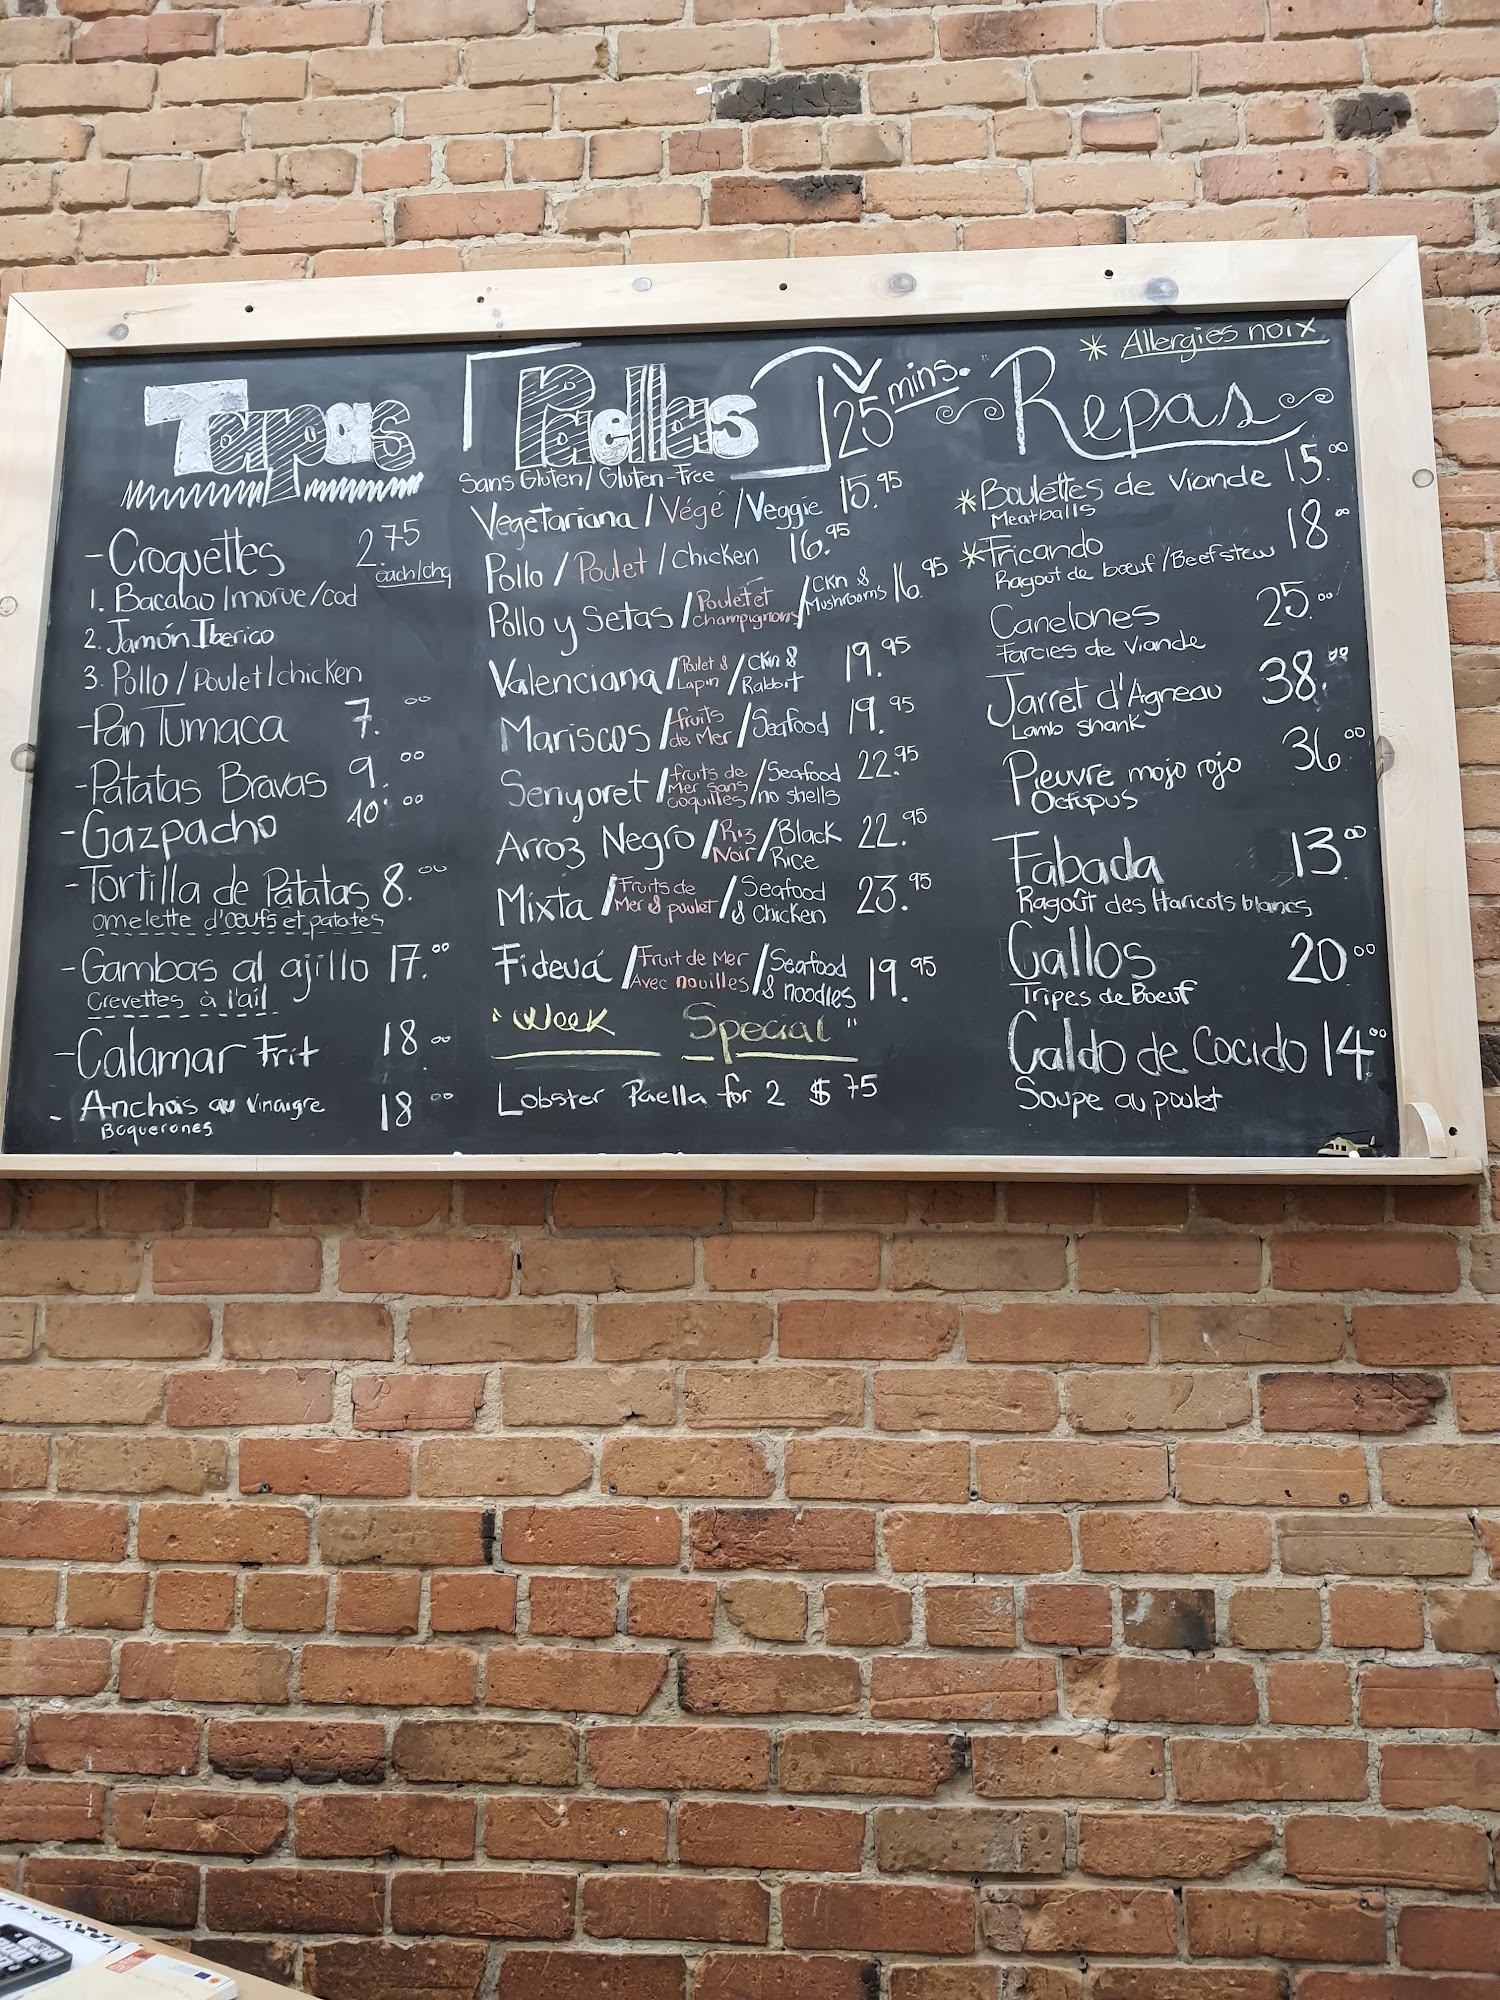 Tapas
- Croquettes 2.75
each/chq
1. Bacalao/morue/cod
2. Jamón Iberico
3. Pollo/Poulet/chicken
- Pan Tumaca 7.00
- Patatas Bravas 9.00
- Gazpacho 10.00
- Tortilla de Patatas 8.00
omelette d'œufs et patates
- Gambas al ajillo 17.00
Crevettes à l'ail
- Calamar Frit 18.00
- Anchois au vinaigre 18.00
Boquerones
Paellas 25 mins.
Sans Gluten/Gluten-Free
Vegetariana/Végé/Veggie 15.95
Pollo/Poulet/chicken 16.95
Pollo y Setas/Poulet et champignons/Ckn & Mushrooms 16.95
Valenciana/Poulet & Lapin/Ckn & Rabbit 19.95
Mariscos/fruits de Mer/Seafood 19.95
Senyoret/fruits de Mer sans coquilles/Seafood no shells 22.95
Arroz Negro/Riz Noir/Black Rice 22.95
Mixta/Fruits de Mer & poulet/Seafood & Chicken 23.95
Fideuá/Fruit de Mer Avec nouilles/Seafood & noodles 19.95
"Week Special"
Lobster Paella for 2 $75
* Allergies noix
Repas
*Boulettes de viande 15.00
Meatballs
*Fricando 18.00
Ragout de bœuf/Beef stew
Canelones 25.00
Farcies de viande
Jarret d'Agneau 38.00
Lamb Shank
Pieuvre mojo rojo 36.00
Octopus
Fabada 13.00
Ragoût des Haricots blancs
Callos 20.00
Tripes de Bœuf
Caldo de Cocido 14.00
Soupe au poulet